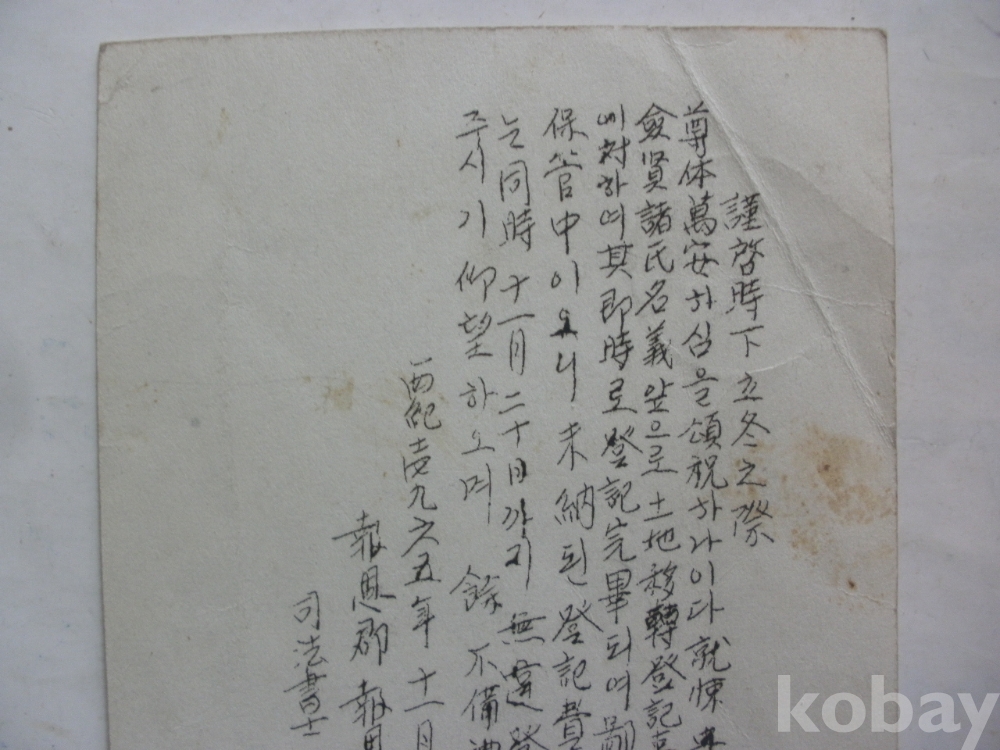 謹啓時下立冬之際
尊体萬安하심을頌祝하나이다就悚
僉賢諸氏名義앞으로土地移轉登記
에対하여其即時로登記完畢되여
保管中이오니未納된登記費
는同時十一月二十日까지無違登
주시기仰望하오며 餘不備
西紀壱九六五年十一月
報恩郡報恩
司法書士
kobay